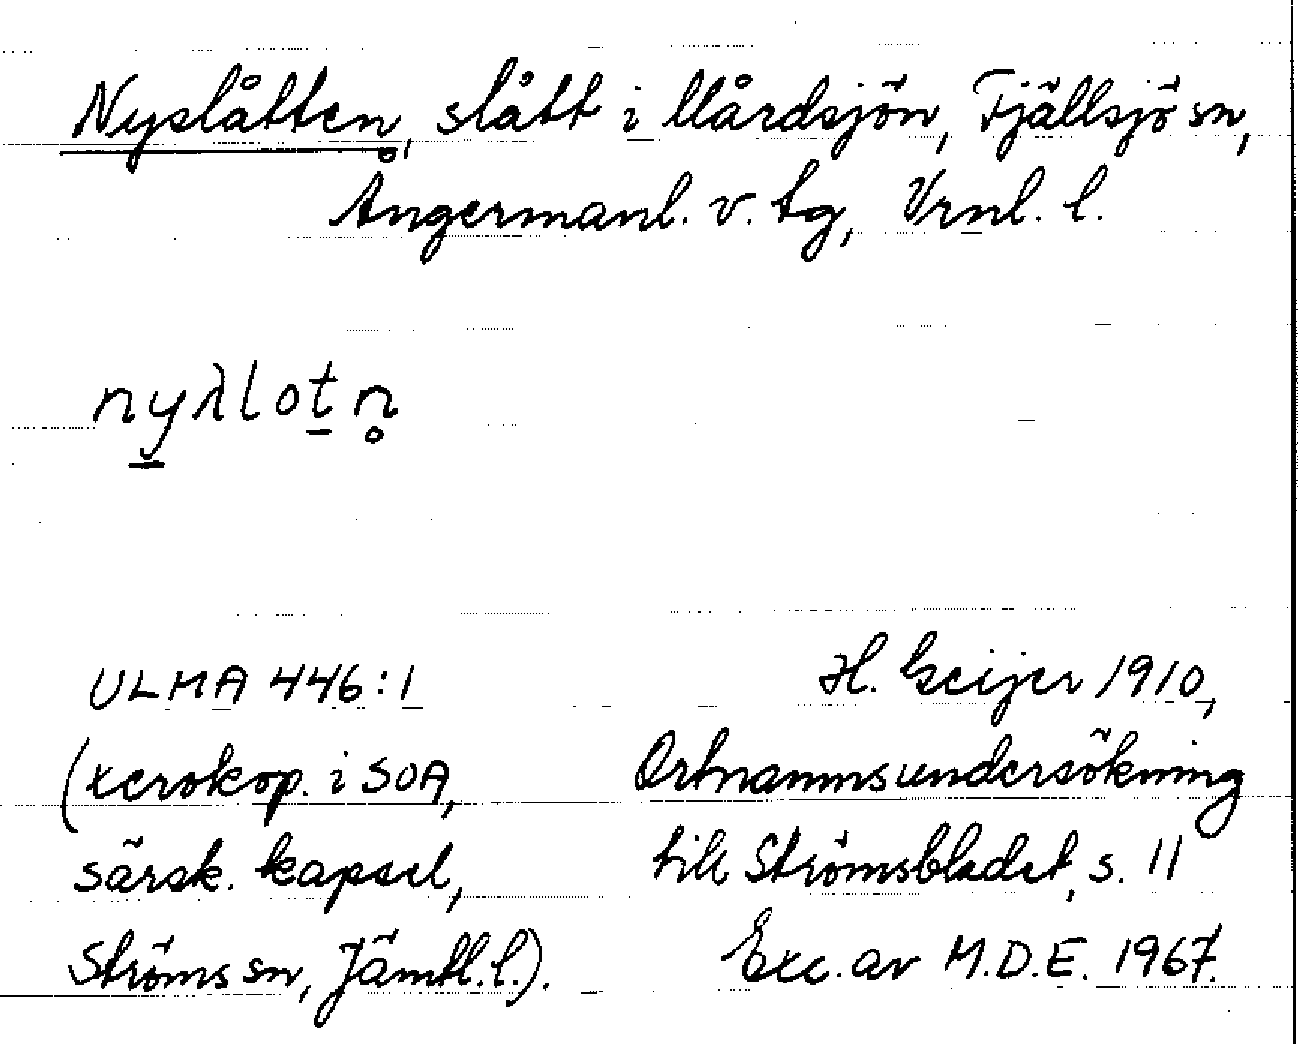 Nyslåtten, slått i Mårdsjön, Fjällsjö sn,
Ångermanl. v. tg, Vrnl. l.
ny̲λlot̲n̥
ULMA 446:1
(xerokop. i SOA,
särsk. kapsel,
Ströms sn, Jämtl. l.).
H. Geijer 1910,
Ortnamnsundersökning
till Strömsbladet, s. 11
Exc. av M.D.E. 1967.